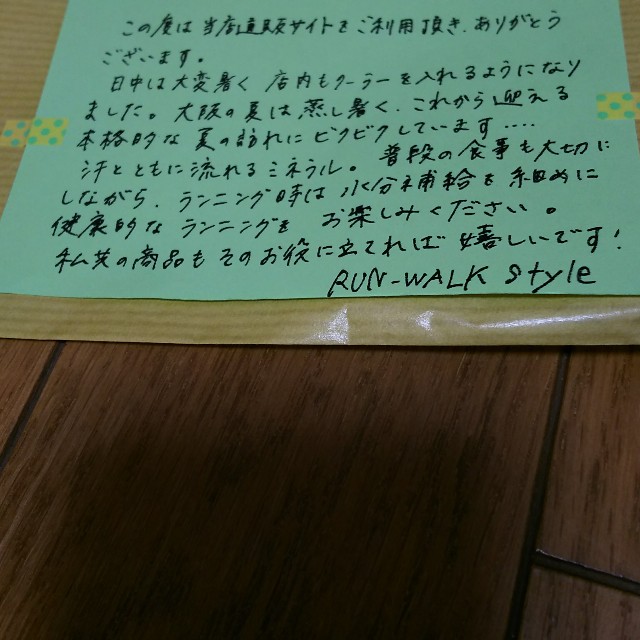 この度は当店通販サイトをご利用頂き、ありがとう
ございます。
日中は大変暑く 店内もクーラーを入れるようになり
ました。大阪の夏は蒸し暑く、これから迎える
本格的な夏の訪れにビクビクしています….
汗とともに流れるミネラル。普段の食事も大切に
しながら、ランニング時は水分補給を細めに
健康的なランニングを お楽しみください。
私共の商品もそのお役に立てれば嬉しいです!
RUN-WALK Style